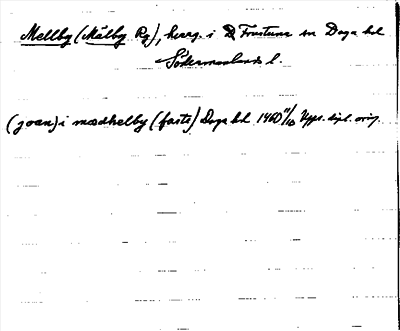 Mellby (Målby Rg), herrg. i Frustuna sn Daga hd
Södermanlands l.
(joan) i mædhelby (faste) Daga hd 1460 11/10 Upps. dipl. orig.